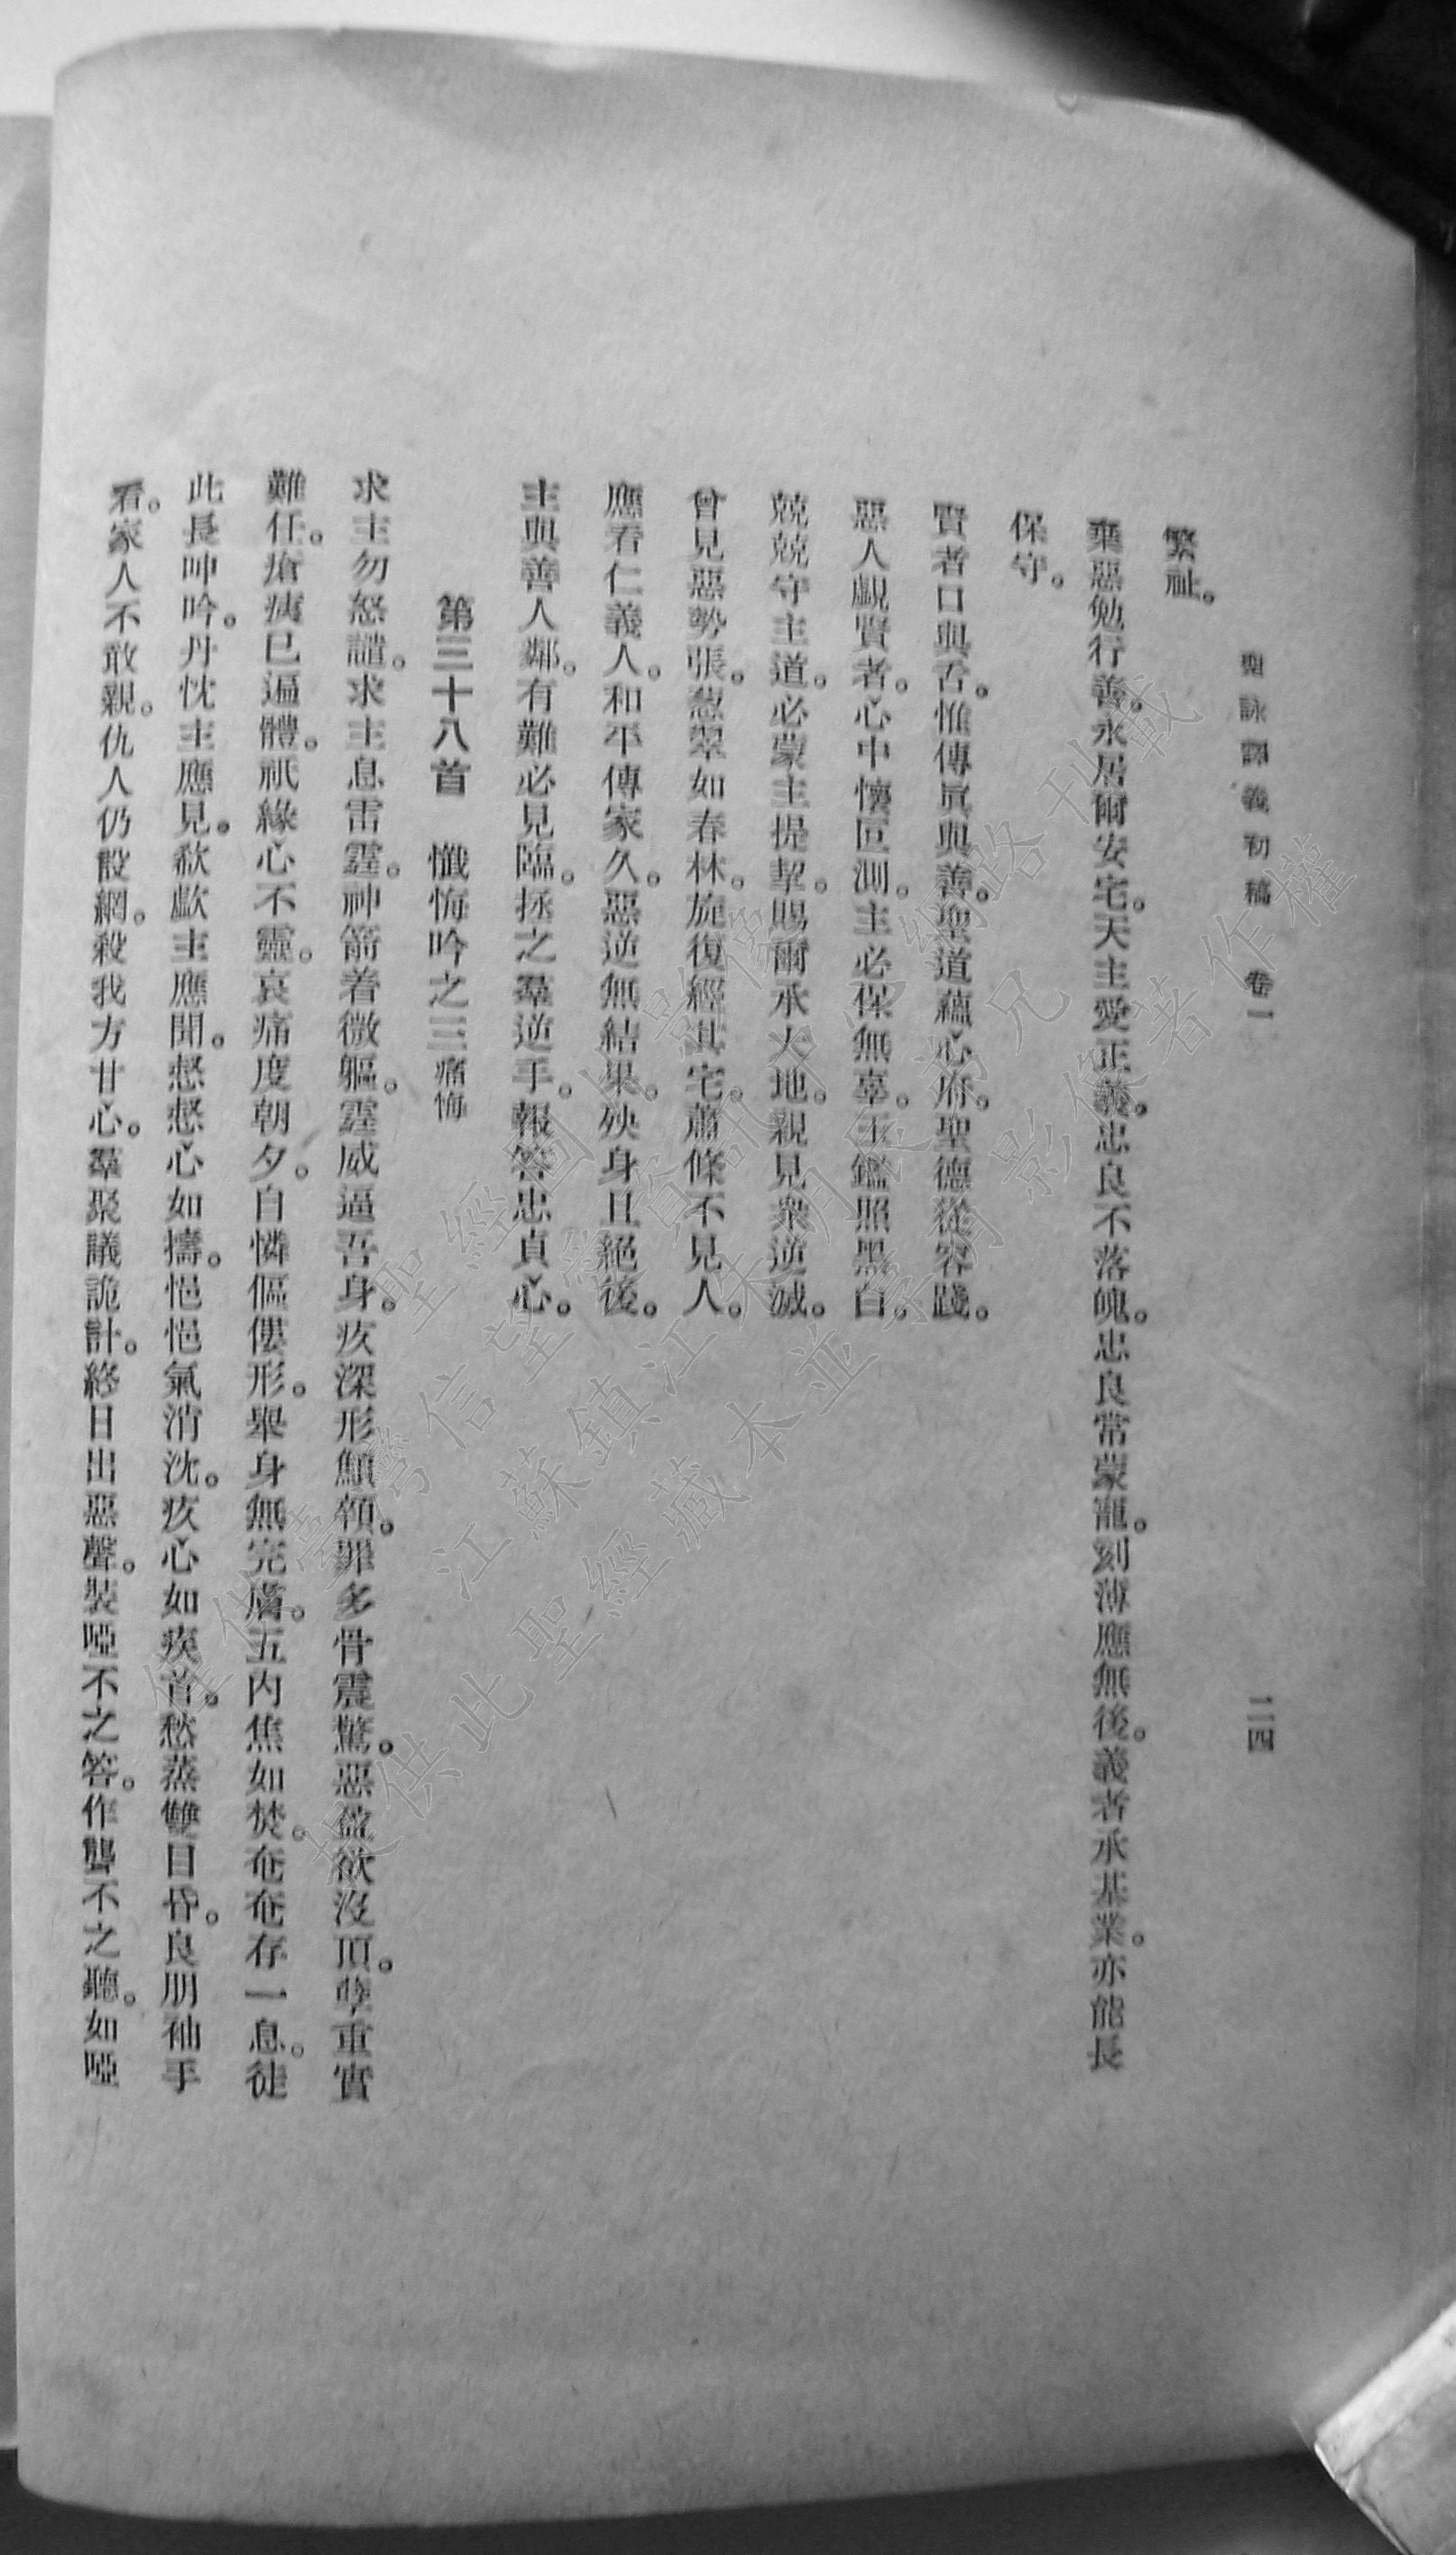 聖詠譯義初稿　卷一　二四
繁祉。
棄惡勉行善。永居爾安宅。天主愛正義。忠良不落魄。忠良常蒙寵。刻薄應無後。義者承基業。亦能長
保守。
賢者口與舌。惟傳眞與善。聖道蘊心府。聖德從容踐。
惡人覷賢者。心中懷叵測。主必保無辜。玉鑑照黑白。
兢兢守主道。必蒙主提挈。賜爾承大地。親見衆逆滅。
曾見惡勢張。葱翠如春林。旋復經其宅。蕭條不見人。
應看仁義人。和平傳家久。惡逆無結果。殃身且絕後。
主與善人鄰。有難必見臨。拯之羣逆手。報答忠貞心。
第三十八首　懺悔吟之三痛悔
求主勿怒譴。求主息雷霆。神箭着微軀。霆威逼吾身。疚深形顦顇。罪多骨震驚。惡盈欲沒頂。孽重實
難任。瘡痍已遍體。祇緣心不靈。哀痛度朝夕。自憐傴僂形。舉身無完膚。五內焦如焚。奄奄存一息。徒
此長呻吟。丹忱主應見。欷歔主應聞。惄惄心如擣。悒悒氣消沈。疚心如疾首。愁蒸雙目昏。良朋袖手
看。家人不敢親。仇人仍設網。殺我方甘心。羣聚議詭計。終日出惡聲。裝啞不之答。作聾不之聽。如啞